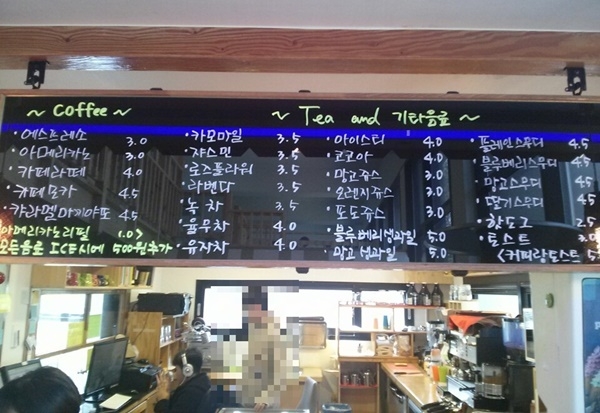 ~ Coffee ~
· 에스프레소 3.0
· 아메리카노 3.0
· 카페라떼 4.0
· 카페모카 4.5
· 카라멜마끼아또 4.5
아메리카노리필 1.0
모든음료 ICE시에 500원추가
~ Tea and 기타음료 ~
· 카모마일 3.5
· 쟈스민 3.5
· 로즈플라워 3.5
· 라벤다 3.5
· 녹차 3.5
· 율무차 4.0
· 유자차 4.0
· 아이스티 4.0
· 코코아 4.0
· 망고쥬스 3.0
· 오렌지쥬스 3.0
· 포도쥬스 3.0
· 블루베리생과일 5.0
· 망고생과일 5.0
· 플레인스무디 4.5
· 블루베리스무디 4.5
· 망고스무디 4.5
· 딸기스무디 4.5
· 핫도그 2.5
· 토스트 3.0
<커피랑토스트 5.